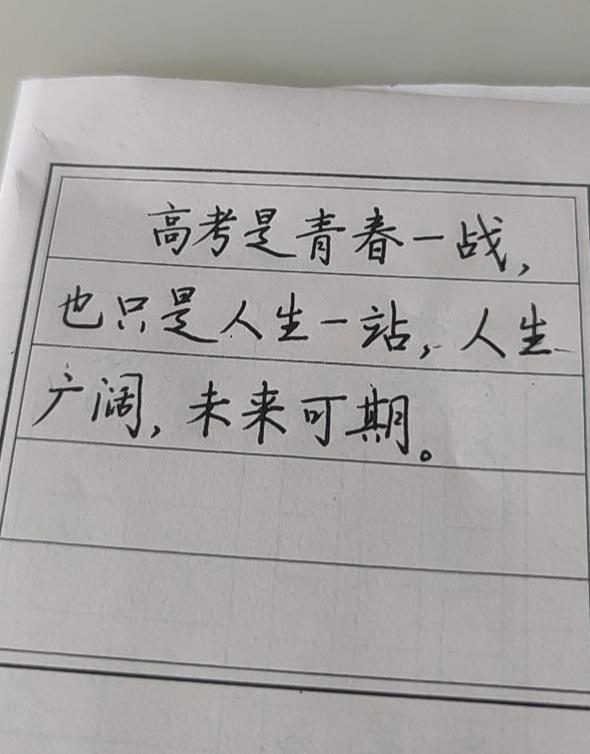 高考是青春一战，
也只是人生一站，人生
广阔，未来可期。